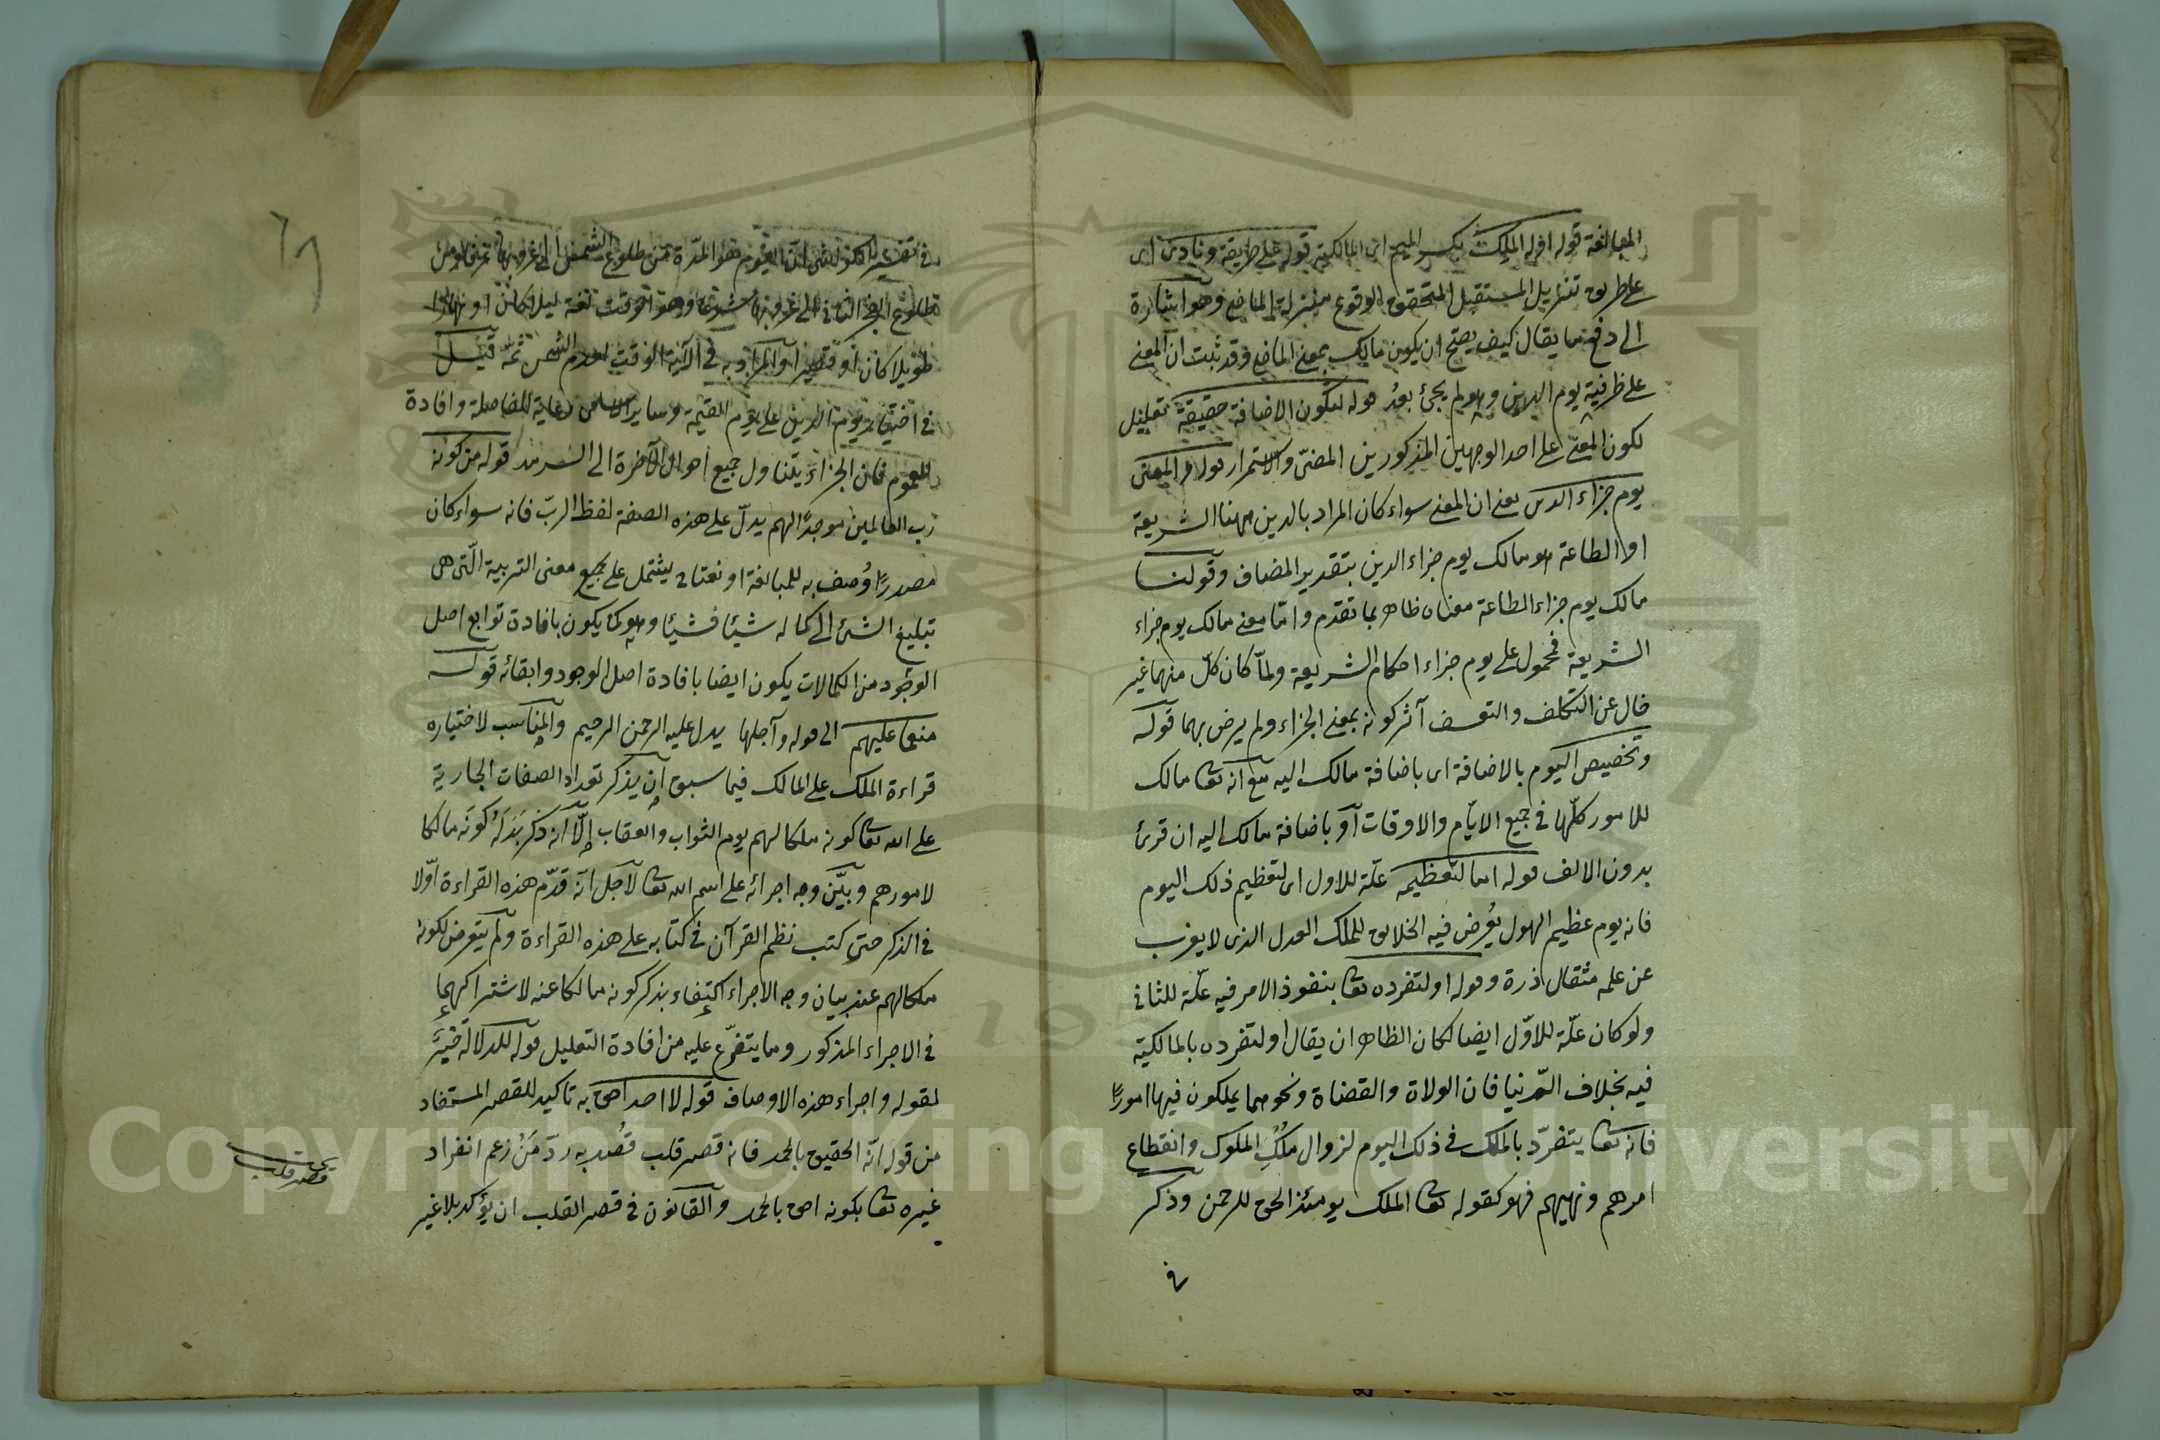 المبالغة قوله او له الملك بكسر الميم اى المالكية قوله على طريقة ونادى اى
على طريق تنزيل المستقبل المتحقق الوقوع بمنزلة الماضى وهو اشارة
الى دفع ما يقال كيف يصح ان يكون مالك بمعنى الماضى وقد ثبت ان المعنى
على ظرفية يوم الدين وهو لم يجئ بعدُ قوله لتكون الاضافة حقيقية تعليل
لكون المعنى على احد الوجهين المذكورين المضى والاستمرار قوله والمعنى
يوم جزاء الدين يعنى ان المعنى سواء كان المراد بالدين ههنا الشريعة
او الطاعة هو مالك يوم جزاء الدين بتقدير المضاف وقولنا
مالك يوم جزاء الطاعة معناه ظاهر بما تقدم واما معنى مالك يوم جزاء
الشريعة فمحمول على يوم جزاء احكام الشريعة ولمّا كان كلّ منهما غير
خال عن التكلف والتعسف آثر كونه بمعنى الجزاء ولم يرض بهما قوله
وتخصيص اليوم بالاضافة اى باضافة مالك اليه مع انه تعا مالك
للامور كلّها فى جميع الايّام والاوقات او باضافة مالك اليه ان قرئ
بدون الالف قوله اما لتعظيمه علّة للاول اى لتعظيم ذلك اليوم
فانه يوم عظيم الهول يُعرض فيه الخلايق للملك العدل الذى لا يعزب
عن علمه مثقال ذرة وقوله او لتفرده تعا بنفوذ الامر فيه علّة للثانى
ولو كان علّة للاوّل ايضا لكان الظاهر ان يقال او لتفرده بالمالكيّة
فيه بخلاف الدّنيا فان الولاة والقضاة ونحوهما يملكون فيها امورًا
فانه تعا يتفرّد بالملك فى ذلك اليوم لزوال مُلكِ الملوك وانقطاع
امرهم ونهيهم فهو كقوله تعا الملك يومئذ الحق للرحمن وذكر
فى
فى تفسير اليوم من طلوع الشمس الى غروبها
طلوع الفجر الثانى الى غروبها شرعا وهو الوقت لغة ليلا كان او نهارا
طويلا كان او قصيرا والمراد به فى الآية الوقت لعدم الشمس ثمه قيل
فى اختيار يوم الدين على يوم القيمة وساير الاسامى رعاية للفاصلة وافادة
للعموم فان الجزاء يتناول جميع احوال الآخرة الى السرمد قوله من كونه
رب العالمين موجدًا لهم يدلّ على هذه الصفة لفظ الربّ فانه سواء كان
مصدرًا وُصف به للمبالغة او نعتا يشتمل على جميع معنى التربية الّتى هى
تبليغ الشئ الى كماله شيئا فشيئا وهو كما يكون بافادة توابع اصل
الوجود من الكمالات يكون ايضا بافادة اصل الوجود وابقائه قوله
منعما عليهم الى قوله وآجلها يدل عليه الرحمن الرحيم والمناسب لاختياره
قراءة الملك على المالك فيما سبق ان يذكر تعداد الصفات الجارية
على الله تعا كونه ملكا لهم يوم الثواب والعقاب إلّا انه ذكر بَدَلَهُ كونَه مالكا
لامورهم وبيّن وجه اجرائه على اسم الله تعا لاجل انه قدّم هذه القراءة اوّلا
فى الذكر حتى كتب نظم القرآن فى كتابه على هذه القراءة ولم يتعرض لكونه
ملكا لهم عند بيان وجه الاجراء اكتفاء بذكر كونه مالكا عنه لاشتراكهما
فى الاجراء المذكور وما يتفرّع عليه من افادة التعليل قوله للدلالة خبر
لقوله واجراء هذه الاوصاف قوله لا احد احق به تاكيد للقصر المستفاد
من قوله انّه الحقيق بالحمد فانه قصر قلب قُصد به ردّ مَنْ زعم انفراد
غيره تعا بكونه احق بالحمد والقانون فى قصر القلب ان يؤكد بلا غير
قصر قلب
Copyright © King Saud University